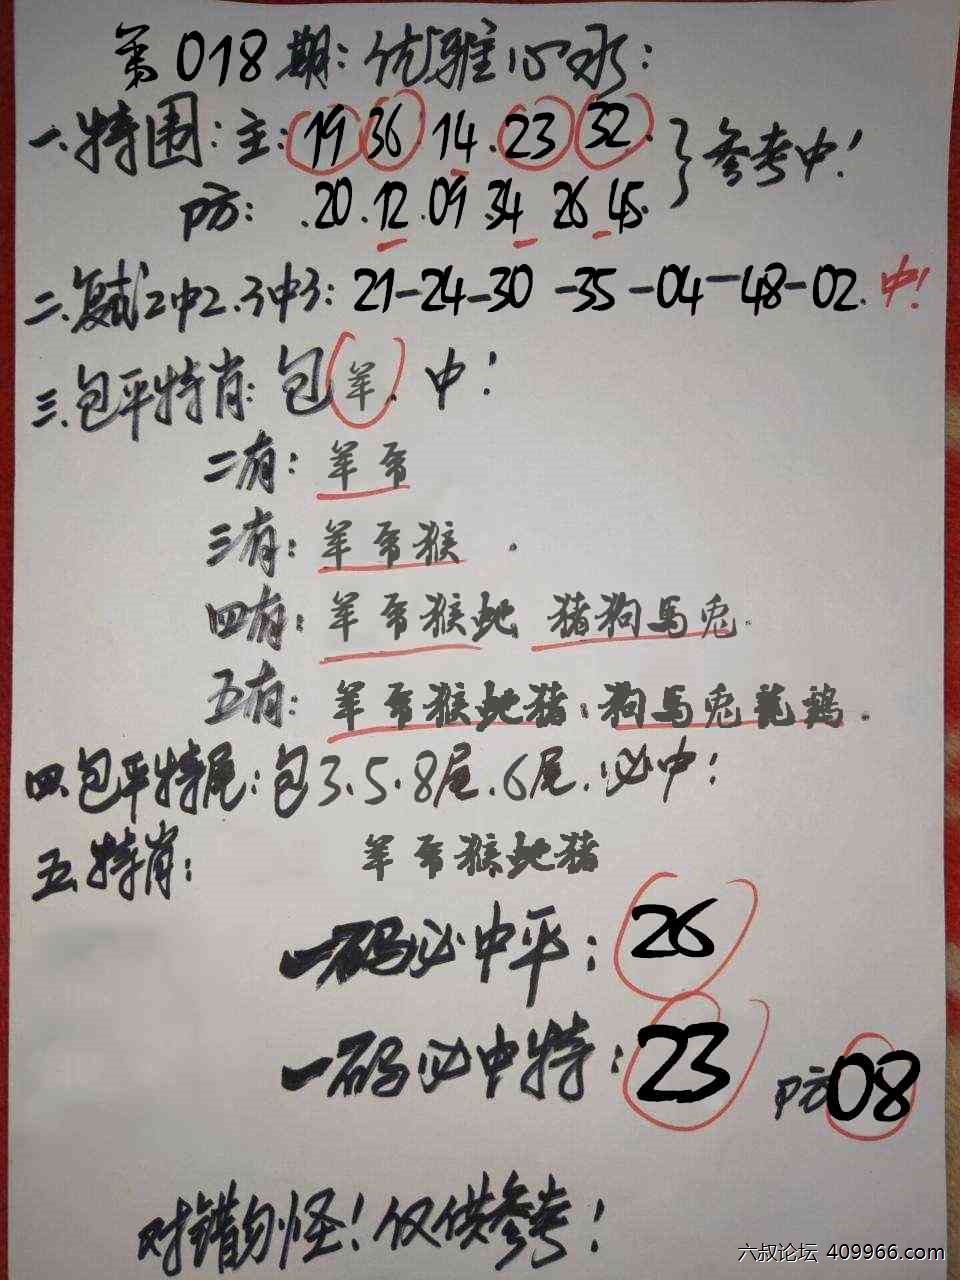 第018期：优雅心水：
一.特围：主：19 36.14.23 32.
防：.20.12.09.34 26 45.
}参考中！
二.复试2中2.3中3：21-24-30-35-04-48-02.中！
三.包平特肖：包羊.中！
二有：羊帝
三有：羊帝猴.
四有：羊帝猴蛇 猪狗马兔.
五有：羊帝猴蛇猪.狗马兔龍鷄.
四.包平特尾：包3.5.8尾.6尾.必中！
五.特肖：羊帝猴蛇猪
一码必中平：26
一码必中特：23 防08
对错勿怪！仅供参考！
六叔论坛 409966.com